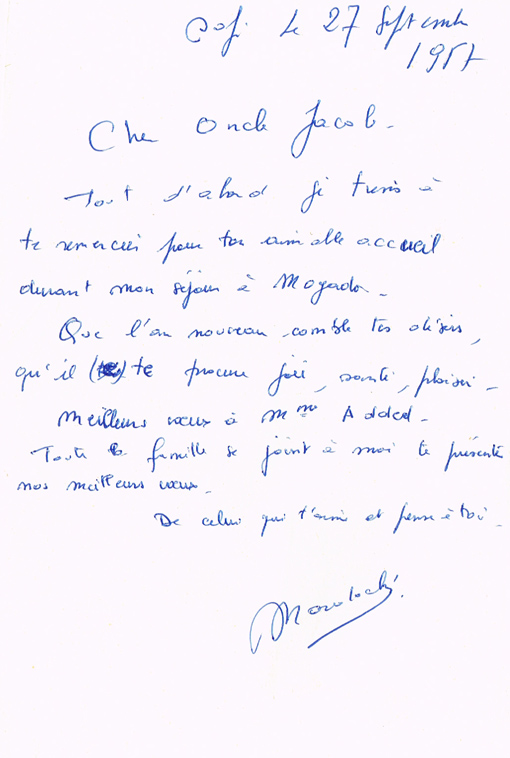 Safi le 27 Septembre
1957
Cher Oncle Jacob -
Tout d'abord je tiens à
te remercier pour ton aimable accueil
durant mon séjour à Mogador -
Que l'an nouveau comble tes désirs,
qu'il te procure joie, santé, plaisir -
Meilleurs vœux à Mme Added -
Toute la famille se joint à moi te présenter
nos meilleurs vœux -
De celui qui t'aime et pense à toi -